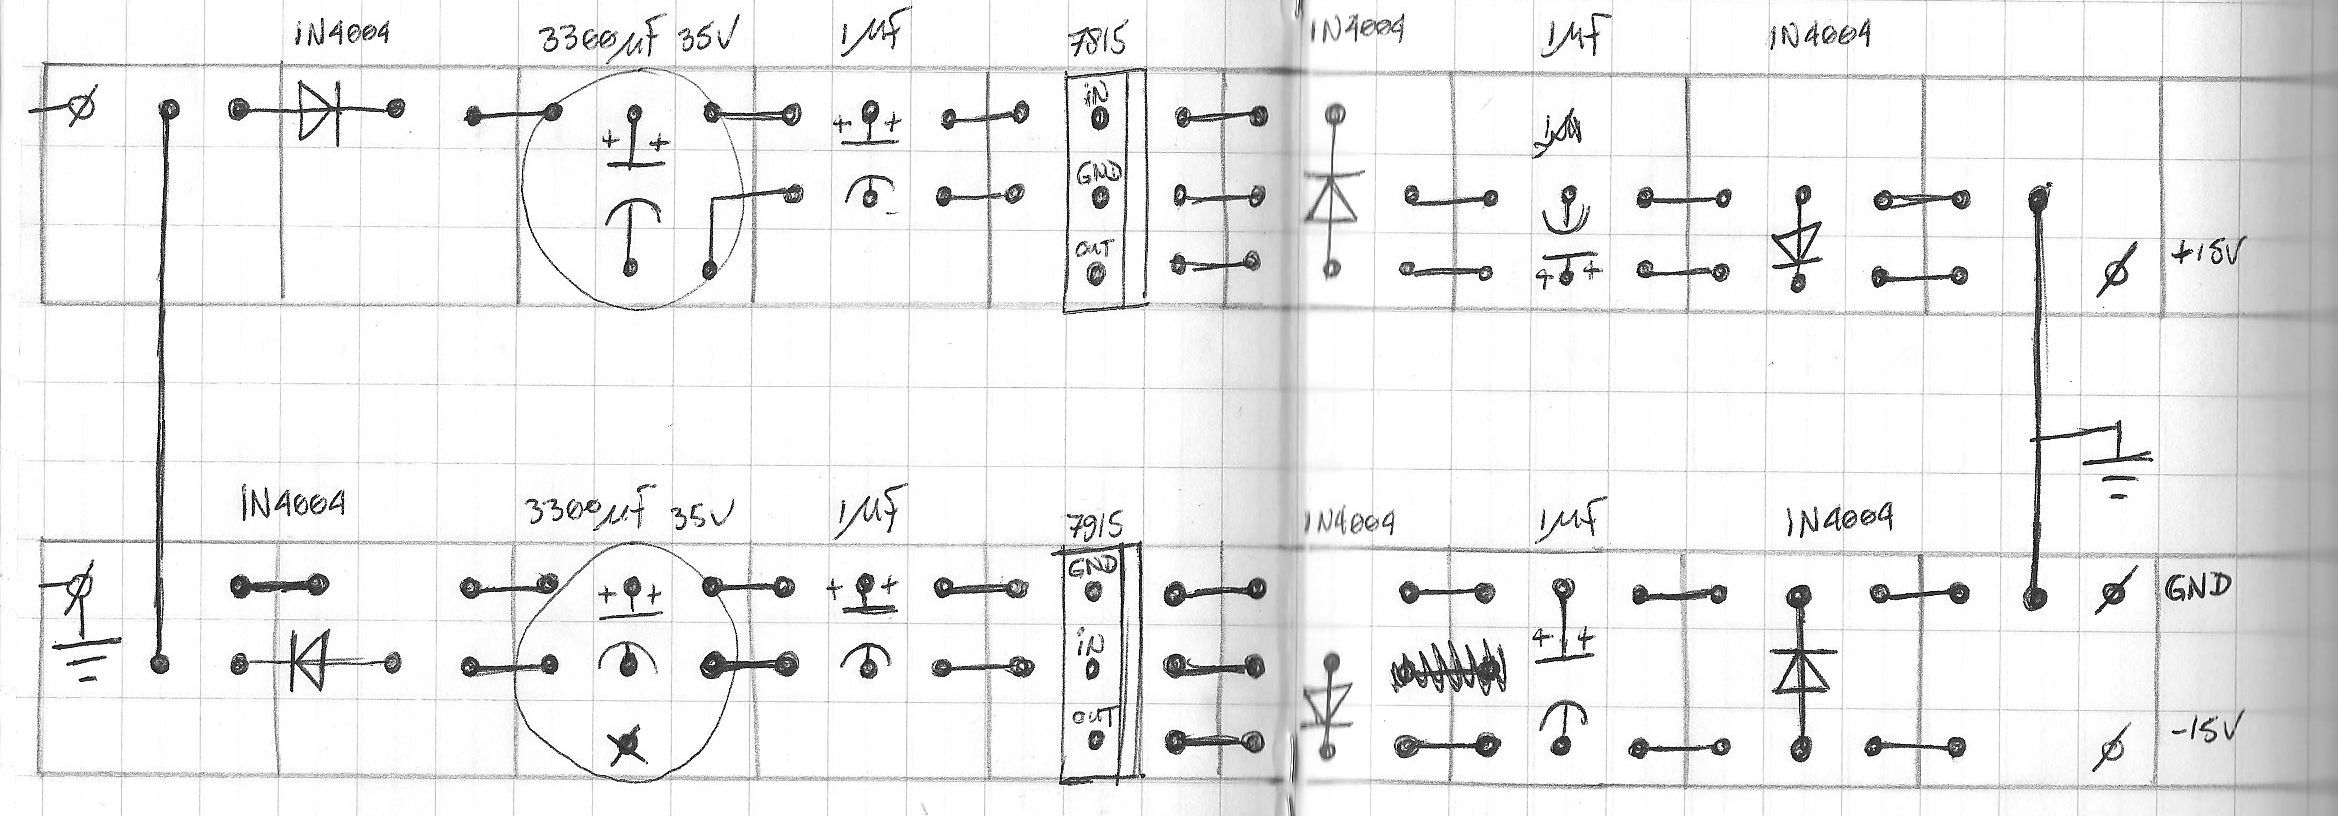 1N4004 3300µF 35V 1µF 7815 1N4004 1µF 1N4004
IN
+ + + +
GND
OUT
+15V
+ +
1N4004 3300µF 35V 1µF 7915 1N4004 1µF 1N4004
GND
GND
+ + + +
IN
+ +
OUT
-15V